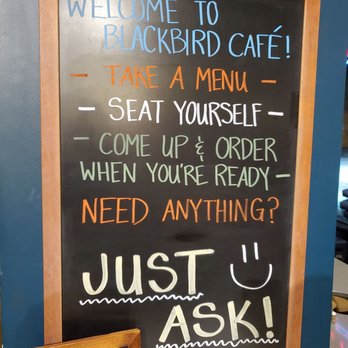 WELCOME TO
BLACKBIRD CAFÉ!
- TAKE A MENU -
- SEAT YOURSELF -
- COME UP & ORDER
WHEN YOU'RE READY -
NEED ANYTHING?
JUST
ASK!